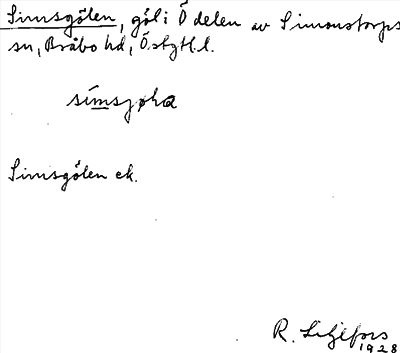 Simsgölen, göl i Ö delen av Simonstorps
sn, Bråbo hd, Östgtl.l.
Simsgölen ek.
R. Liljefors
1928